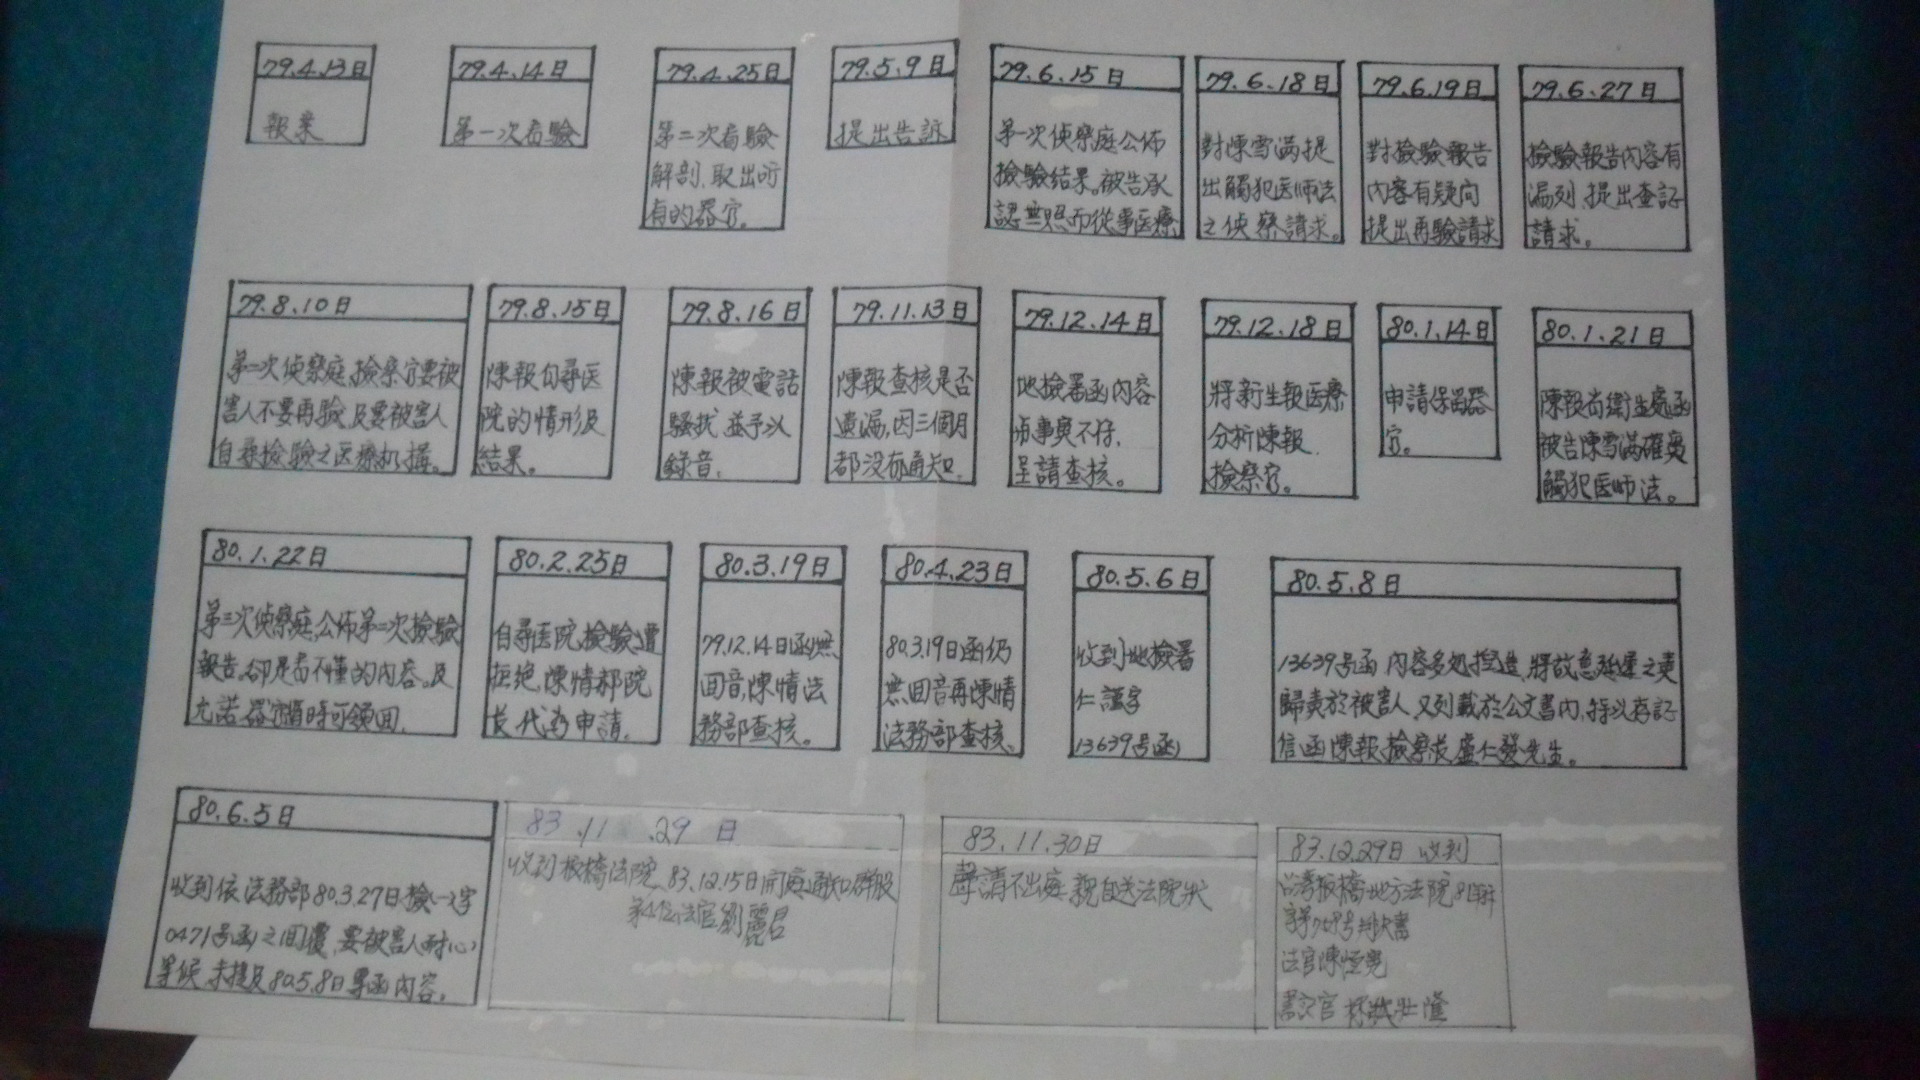 79.4.13日
報案
79.4.14日
第一次看驗
79.4.25日
第二次看驗
解剖、取出所
有的器官。
79.5.9日
提出告訴
79.6.15日
第一次偵察庭公佈
檢驗結果。被告承
認無照而從事医療
79.6.18日
對陳雪滿提
出觸犯医师法
之偵察請求。
79.6.19日
對檢驗報告
內容有疑问
提出再驗請求
79.6.27日
檢驗報告內容有
漏列、提出查証
請求。
79.8.10日
第二次偵察庭、檢察官要被
害人不要再驗、及要被害人
自尋檢驗之医療机構。
79.8.15日
陳報自尋医
院的情形及
結果。
79.8.16日
陳報被電話
騷扰並予以
錄音.
79.11.13日
陳報查核是否
遺漏,因三個月
都没有通知.
79.12.14日
地檢署函內容
与事實不符、
呈請查核。
79.12.18日
將新生報医療
分析陳報
檢察官。
80.1.14日
申請保留器
官。
80.1.21日
陳報省衛生處函
被告陳雪滿確實
觸犯医师法。
80.1.22日
第三次偵察庭、公佈第二次檢驗
報告。卻是看不懂的內容。及
允諾器官隨時可領回.
80.2.25日
自尋医院檢驗遭
拒絕,陳情郝院
長代為申請.
80.3.19日
79.12.14日函無
回音,陳情法
務部查核。
80.4.23日
80.3.19日函仍
無回音再陳情
法務部查核.
80.5.6日
收到地檢署
仁謹字
13639号函
80.5.8日
13639号函內容多処捏造,將故意延遲之責
歸責於被害人,又列載於公文書內,特以存証
信函陳報檢察長盧仁發先生。
80.6.5日
收到依法務部80.3.27日檢一字
0471号函之回覆,要被害人耐心
等候,未提及80.5.8日專函內容。
83.11.29日
收到板橋法院83.12.15日開庭通知群股
第4位法官劉麗君
83.11.30日
聲請不出庭親自送法院狀
83.12.29日收到
台湾板橋地方法院
判決書
法官陳恆寬
書記官